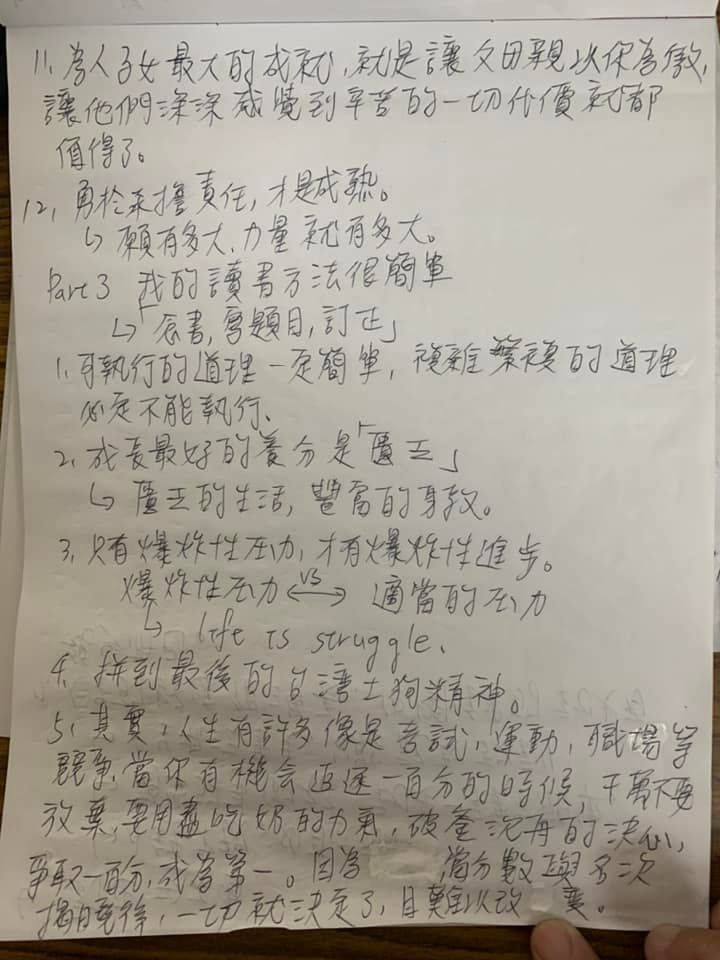 11. 為人子女最大的成就，就是讓父母親以你為傲，
讓他們深深感覺到辛苦的一切代價就都
值得了。
12. 勇於承擔責任，才是成熟。
↳ 願有多大，力量就有多大。
Part 3 我的讀書方法很簡單
↳「念書，寫題目，訂正」
1. 可執行的道理一定簡單，複雜繁複的道理
必定不能執行。
2. 成長最好的養分是「匱乏」
↳ 匱乏的生活，豐富的身教。
3. 只有爆炸性壓力，才有爆炸性進步。
爆炸性壓力 ←VS→ 適當的壓力
↳ life is struggle.
4. 拼到最後的台灣土狗精神。
5. 其實，人生有許多像是考試，運動，職場等
競爭，當你有機会追逐一百分的時候，千萬不要
放棄，要用盡吃奶的力氣，破釜沉舟的決心，
爭取一百分，成為第一。因為 當分數與名次
揭曉後，一切就決定了，且難以改 變。